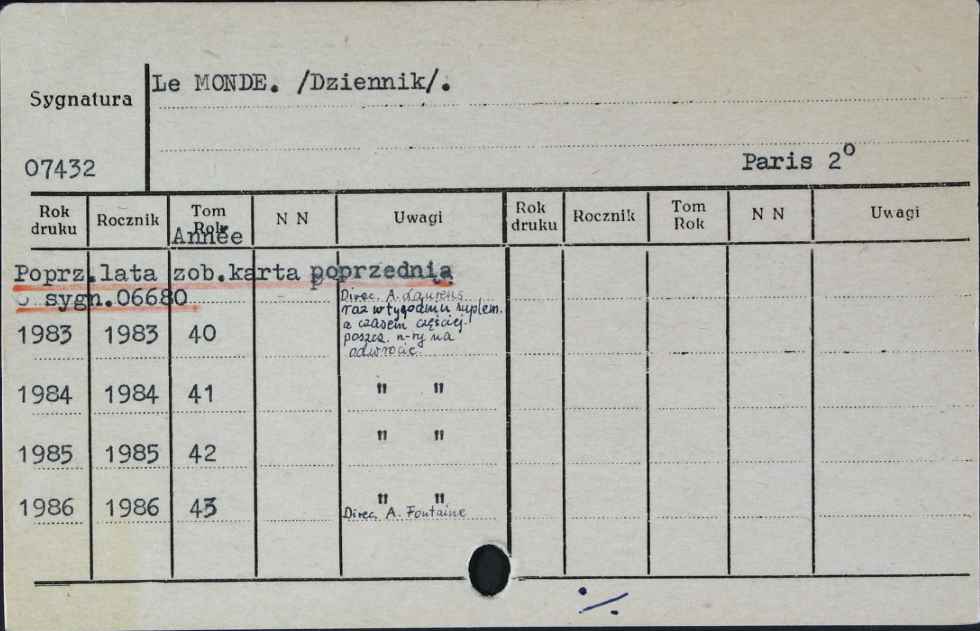 Le MONDE. /Dziennik/.
Sygnatura
07432
Paris 2°
Rok druku Rocznik Tom Rok N N Uwagi Rok druku Rocznik Tom Rok N N Uwagi
Année
Poprz.lata zob.karta poprzednia
sygn.06680
Direc. A. Laurens
raz w tygodniu suplem.
a czasem częściej
1983 1983 40 poszcz. n-ry na
odwrocie
1984 1984 41 " "
1985 1985 42 " "
1986 1986 43 " "
Direc. A. Fontaine